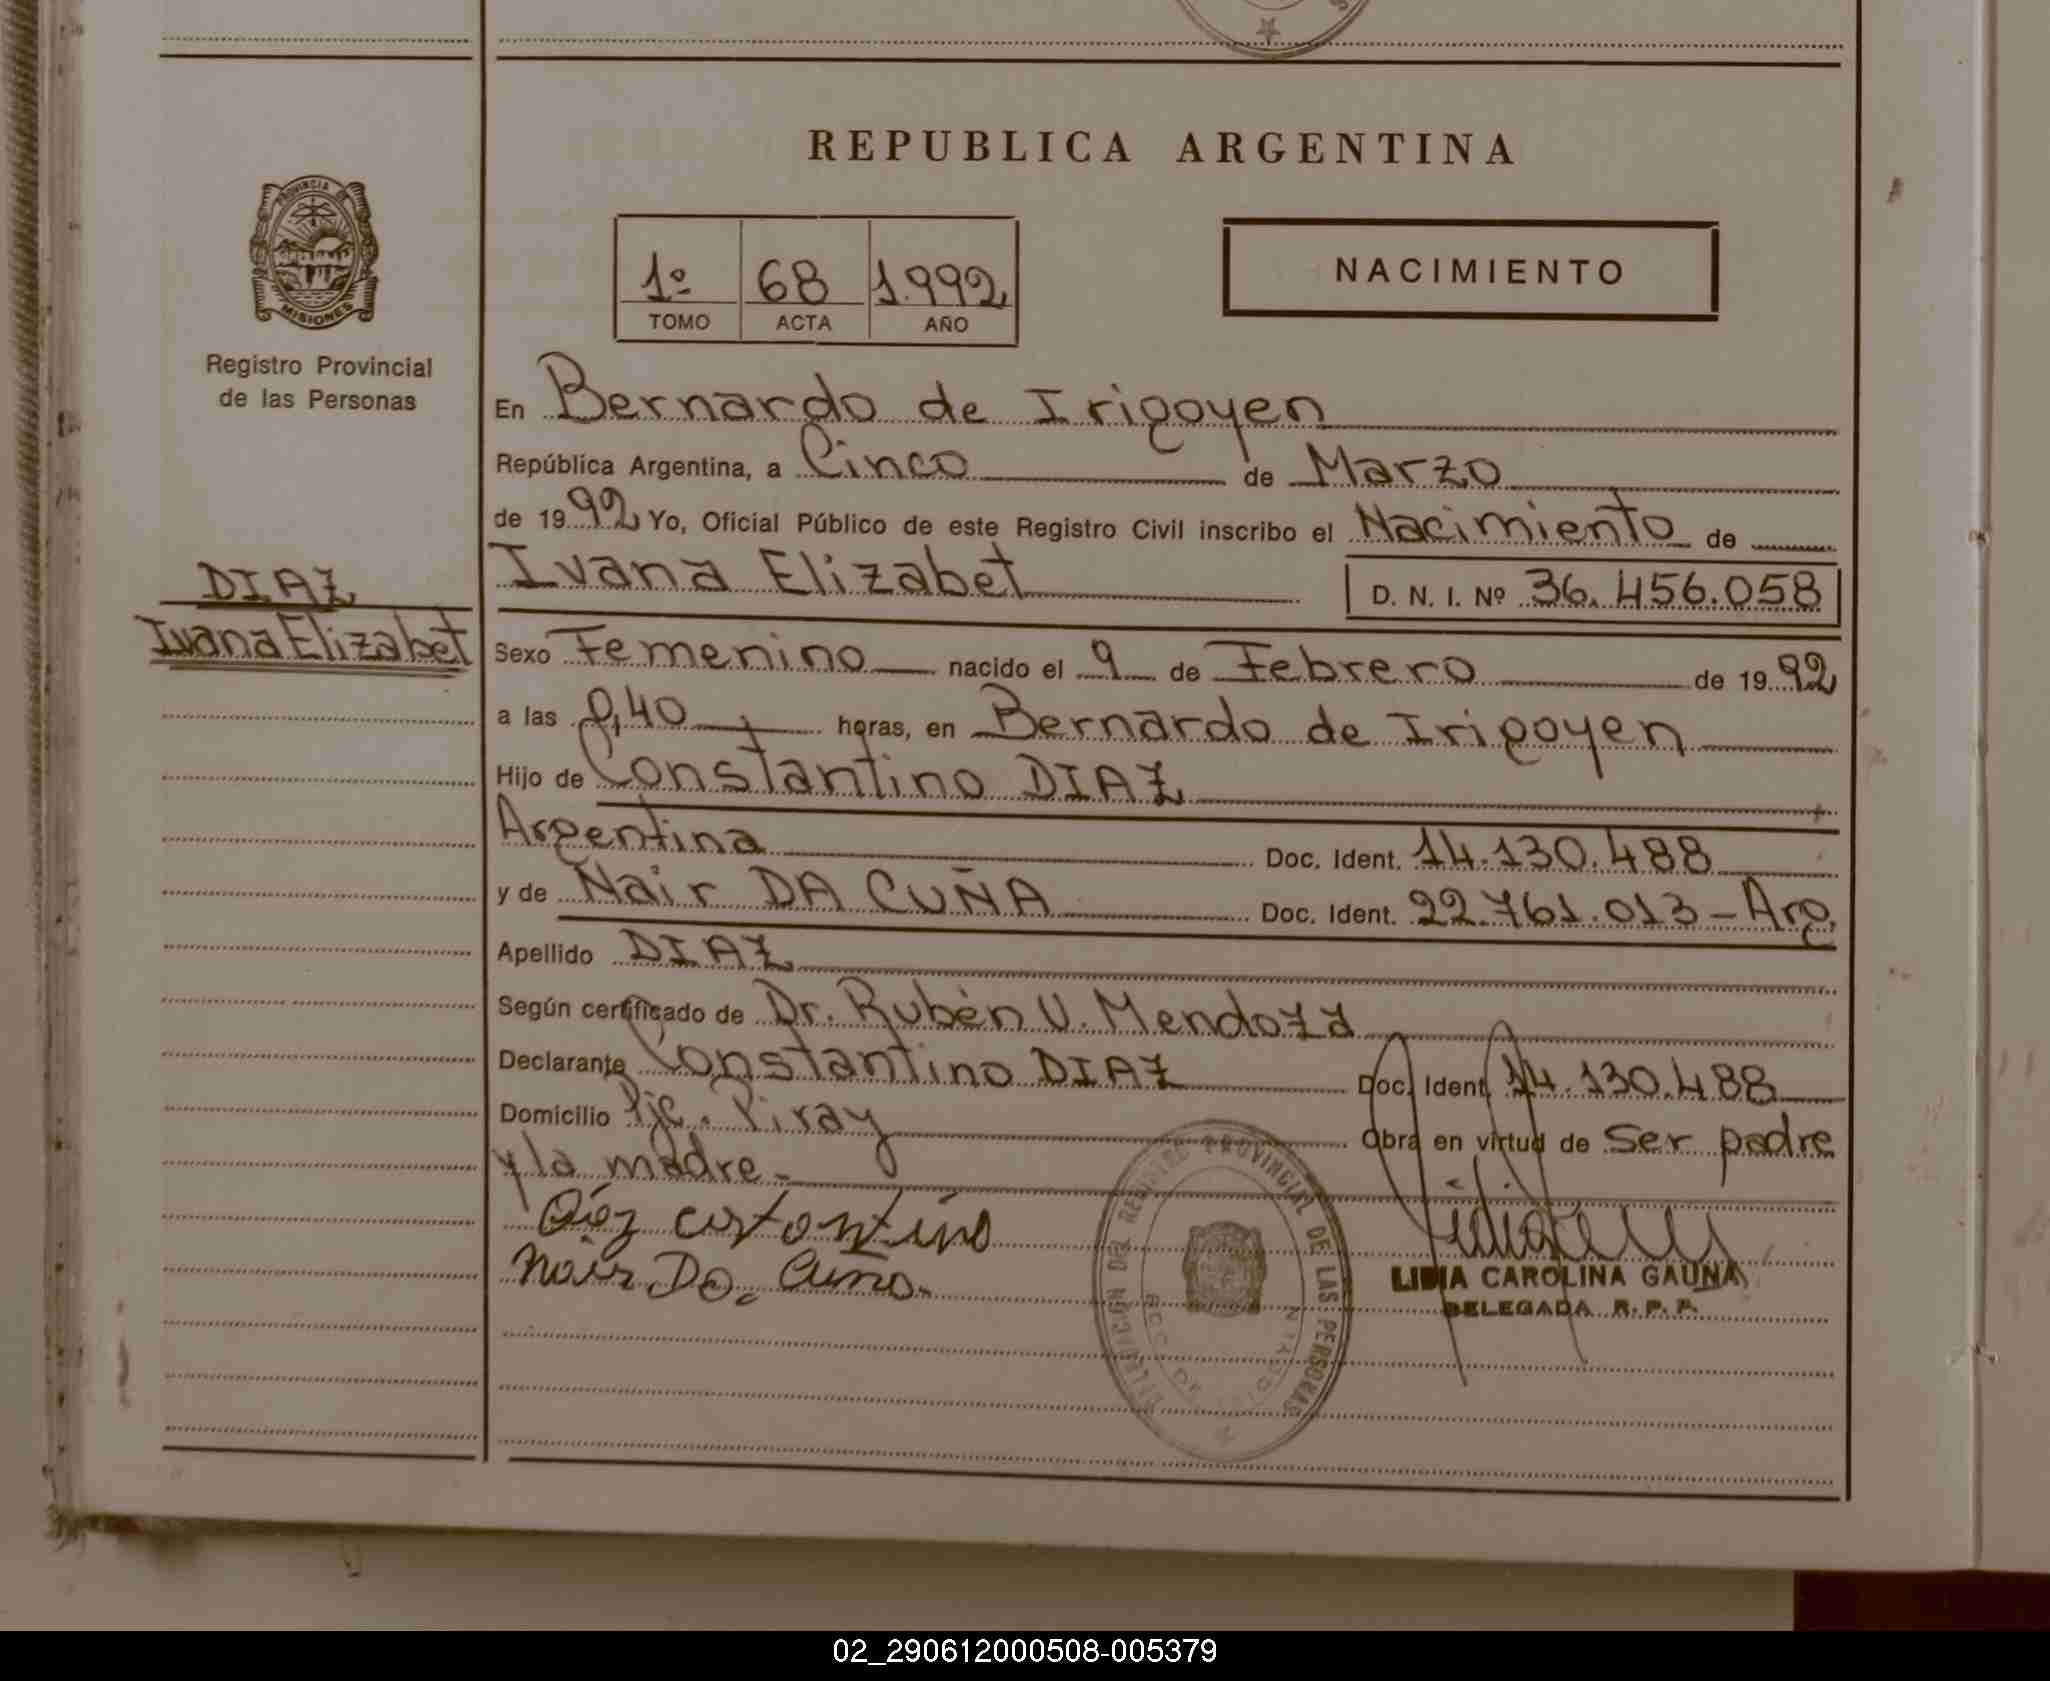 REPUBLICA ARGENTINA
PROVINCIA DE
MISIONES
Registro Provincial
de las Personas
1º 68 1.992
TOMO ACTA AÑO
NACIMIENTO
En Bernardo de Irigoyen
República Argentina, a Cinco de Marzo
de 1992 Yo, Oficial Público de este Registro Civil inscribo el Nacimiento de
DIAZ
Ivana Elizabet
Ivana Elizabet D. N. I. Nº 36.456.058
Sexo Femenino nacido el 9 de Febrero de 1992
a las 0,40 horas, en Bernardo de Irigoyen
Hijo de Constantino DIAZ
Argentina Doc. Ident. 14.130.488
y de Nair DA CUÑA Doc. Ident. 22.761.013-Arg.
Apellido DIAZ
Según certificado de Dr. Rubén V. Mendoza
Declarante Constantino DIAZ Doc. Ident. 14.130.488
Domicilio Pje. Piray Obra en virtud de ser padre
y la madre.-
Nair Da. Cuña.
REGISTRO PROVINCIAL DE LAS PERSONAS
LIDIA CAROLINA GAUNA
DELEGADA R.P.P.
02_290612000508-005379